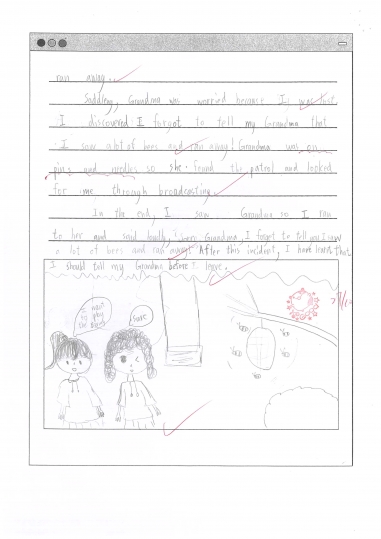 ran away.
Suddenly, Grandma was worried because I was lost.
I discovered I forgot to tell my Grandma that
I saw a lot of bees and ran away! Grandma was on
pins and needles so she found the patrol and looked
for me through broadcasting.
In the end, I saw Grandma so I ran
to her and said loudly, Grandma, I forget to tell you I saw
a lot of bees and ran away. After this incident, I have learnt that
I should tell my Grandma before I leave.
I want to play the
Sure